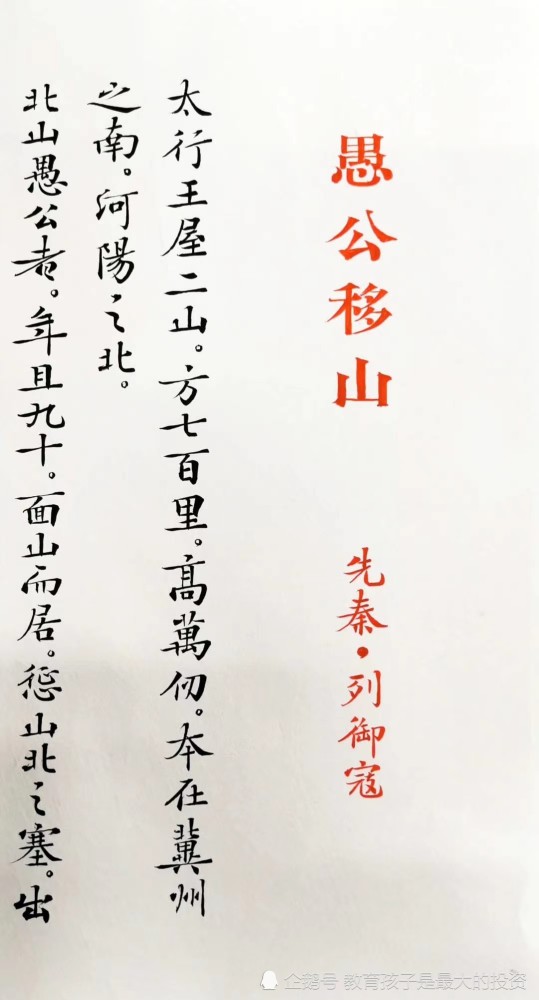 愚公移山
先秦·列御寇
太行王屋二山。方七百里。高萬仞。本在冀州
之南。河陽之北。
北山愚公者。年且九十。面山而居。惩山北之塞。出
企鹅号 教育孩子是最大的投资